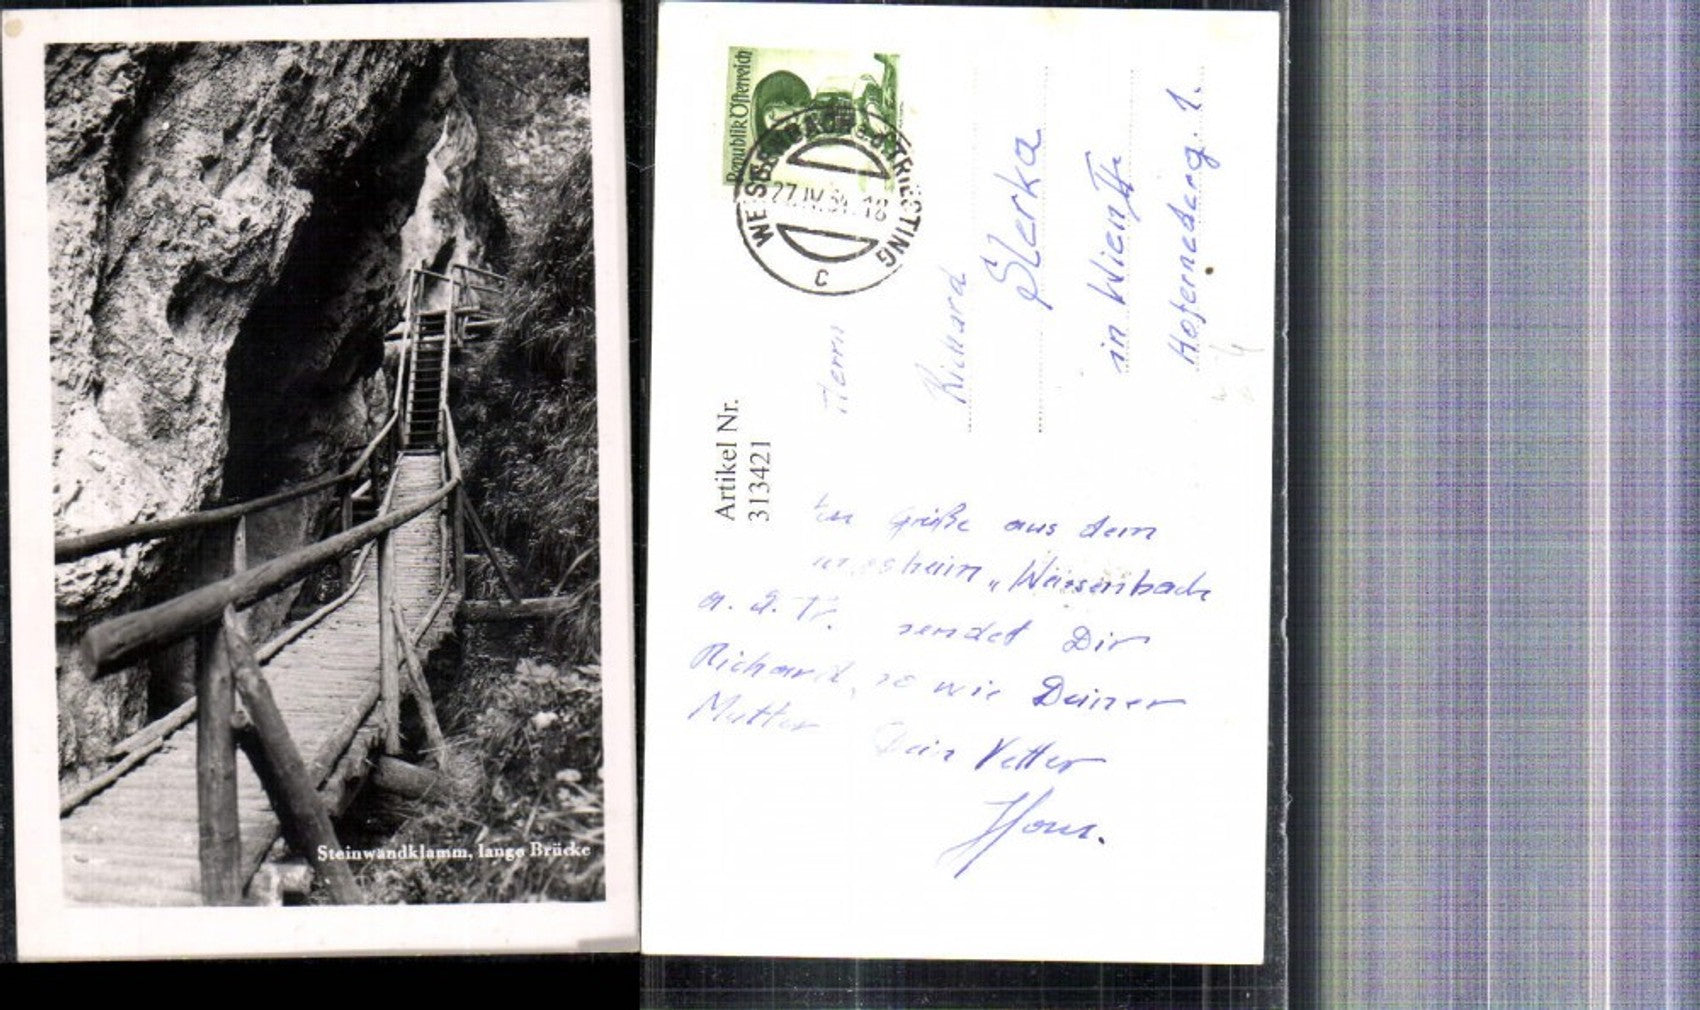 Steinwandklamm, lange Brücke
Republik Österreich
WEISSENBACH a.d. TRIESTING
27.IV.54.18
c
Artikel Nr.
313421
Herrn
Richard
Slerka
in Wien
1.
Grüße aus dem
"Weissenbach
a. d. Tr. sendet Dir
Richard, so wie Deiner
Mutter Dein Vetter